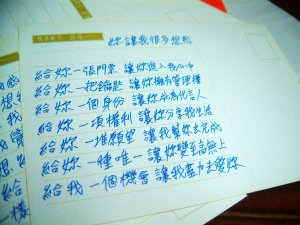 妳讓我很多想給
給妳一張門票 讓妳進入我心中
給妳一把鑰匙 讓妳擁有管理權
給妳一個身份 讓妳成為代言人
給妳一項權利 讓妳分享我生活
給妳一堆願望 讓我幫妳去完成
給妳一種唯一 讓妳變至高無上
給我一個機會 讓我盡力去愛妳